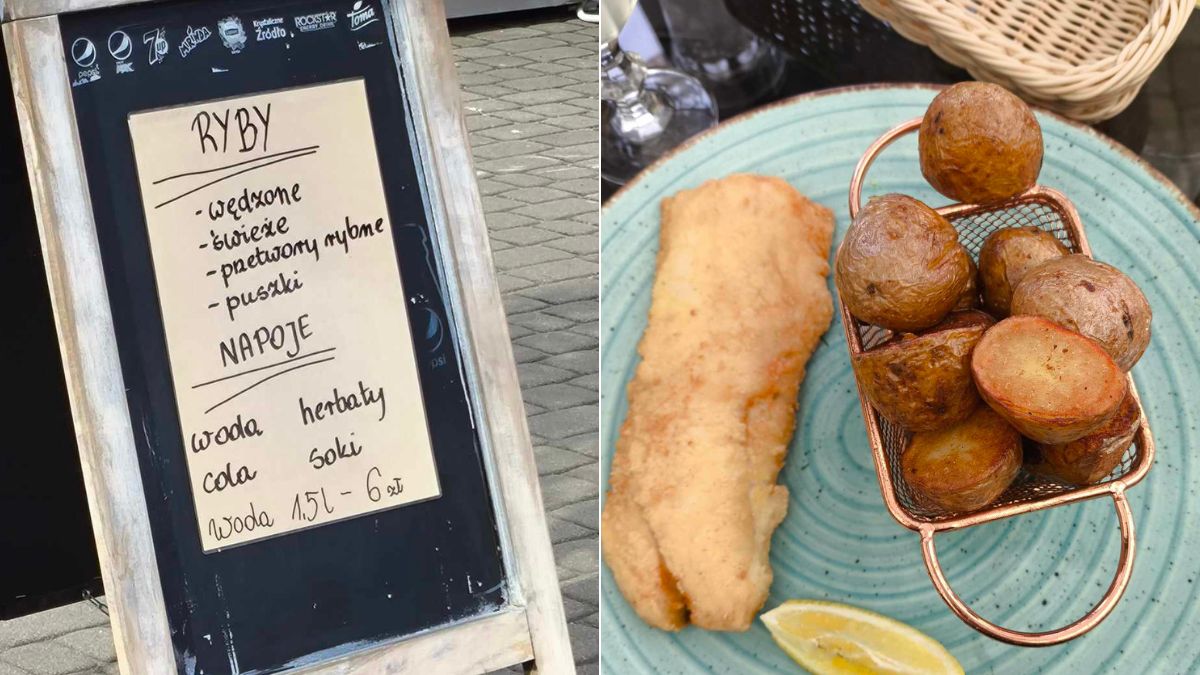 pepsi
pepsi MAX
7UP
MIRINDA
Krystaliczne Źródło
ROCKSTAR
ENERGY DRINK
Toma
RYBY
- wędzone
- świeże
- przetwory rybne
- puszki
NAPOJE
woda herbaty
cola soki
woda 1,5l - 6 zł